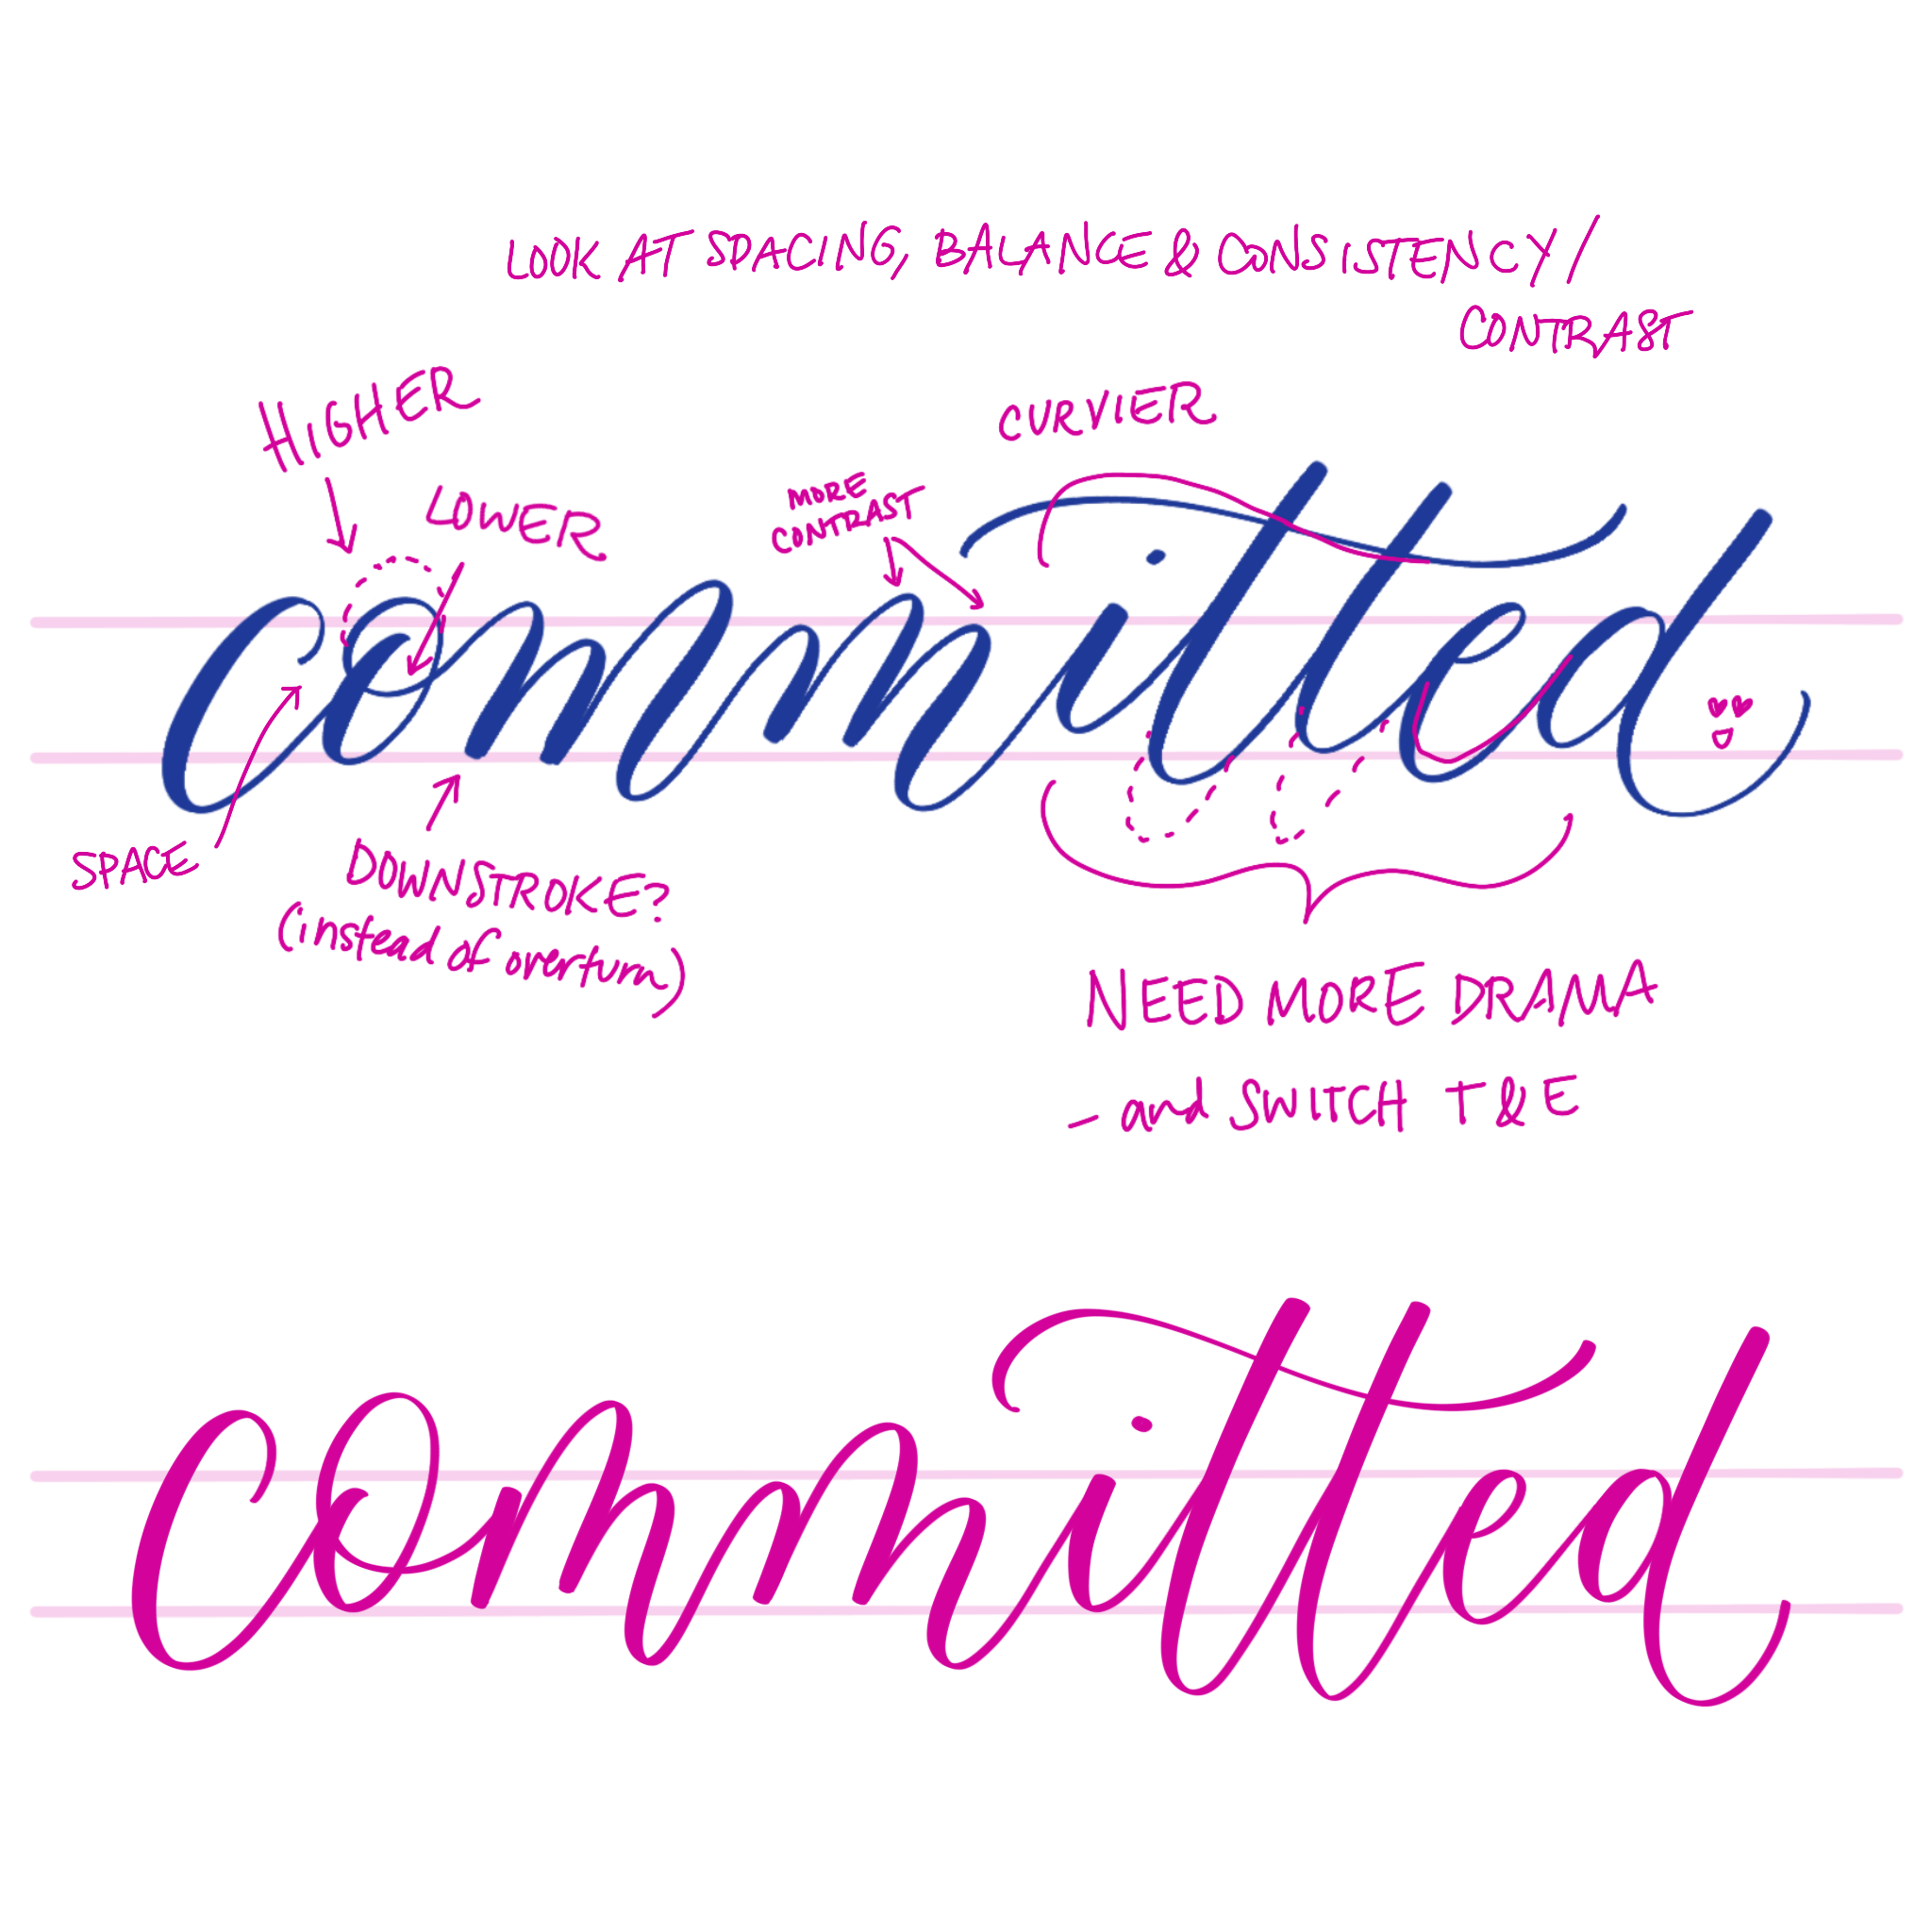 LOOK AT SPACING, BALANCE & CONSISTENCY/
CONTRAST
HIGHER
LOWER
MORE
CONTRAST
CURVIER
committed
SPACE
DOWNSTROKE?
(instead of overturn)
NEED MORE DRAMA
- and SWITCH T & E
committed